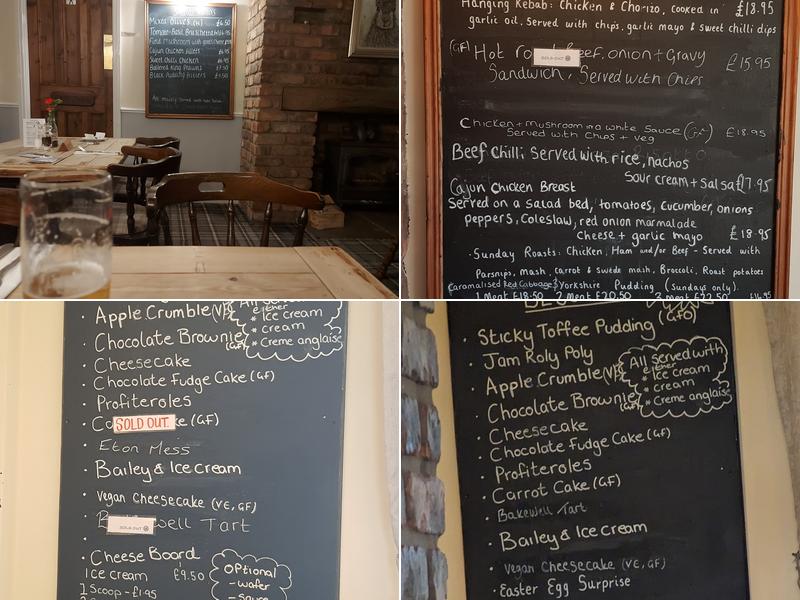 Mixed Olives
Cajun Chicken Fillets
Sweet Chilli Chicken
Battered King Prawns
Black Pudding Fritters
Hanging Kebab: Chicken & Chorizo, cooked in £18.95
garlic oil. Served with chips, garlic mayo & sweet chilli dips
(GF) Hot Beef, onion + Gravy £15.95
SOLD OUT
Sandwich, Served with Chips
Chicken + mushroom in a white sauce (GF) £18.95
Served with chips + veg
Beef Chilli Served with rice, nachos
Sour cream + Salsa £17.95
Cajun Chicken Breast
Served on a salad bed, tomatoes, cucumber, onions
peppers, coleslaw, red onion marmalade
cheese + garlic mayo £18.95
· Sunday Roasts: Chicken, Ham and/or Beef - Served with
Parsnips, mash, carrot & swede mash, Broccoli, Roast potatoes
Caramalised Red Cabbage Yorkshire Pudding (Sundays only).
1 Meat £18.50 2 meat £20.50
· Apple Crumble (VE)
· Chocolate Brownie (GF)
All served with
either
* Ice cream
* cream
* Creme anglaise
· Cheesecake
· Chocolate Fudge Cake (GF)
· Profiteroles
· Ca SOLD OUT ke (GF)
· Eton Mess
· Bailey & Ice cream
· Vegan Cheesecake (VE, GF)
· B SOLD OUT well Tart
· Cheese Board £9.50
Ice cream
1 Scoop - £1.95
Optional
- wafer
- sauce
· Sticky Toffee Pudding (GFO)
· Jam Roly Poly
· Apple Crumble (VE)
· Chocolate Brownie (GF)
All served with
either
* Ice cream
* cream
* Creme anglaise
· Cheesecake
· Chocolate Fudge Cake (GF)
· Profiteroles
· Carrot Cake (GF)
· Bakewell Tart
· Bailey & Ice cream
· Vegan Cheesecake (VE, GF)
· Easter Egg Surprise